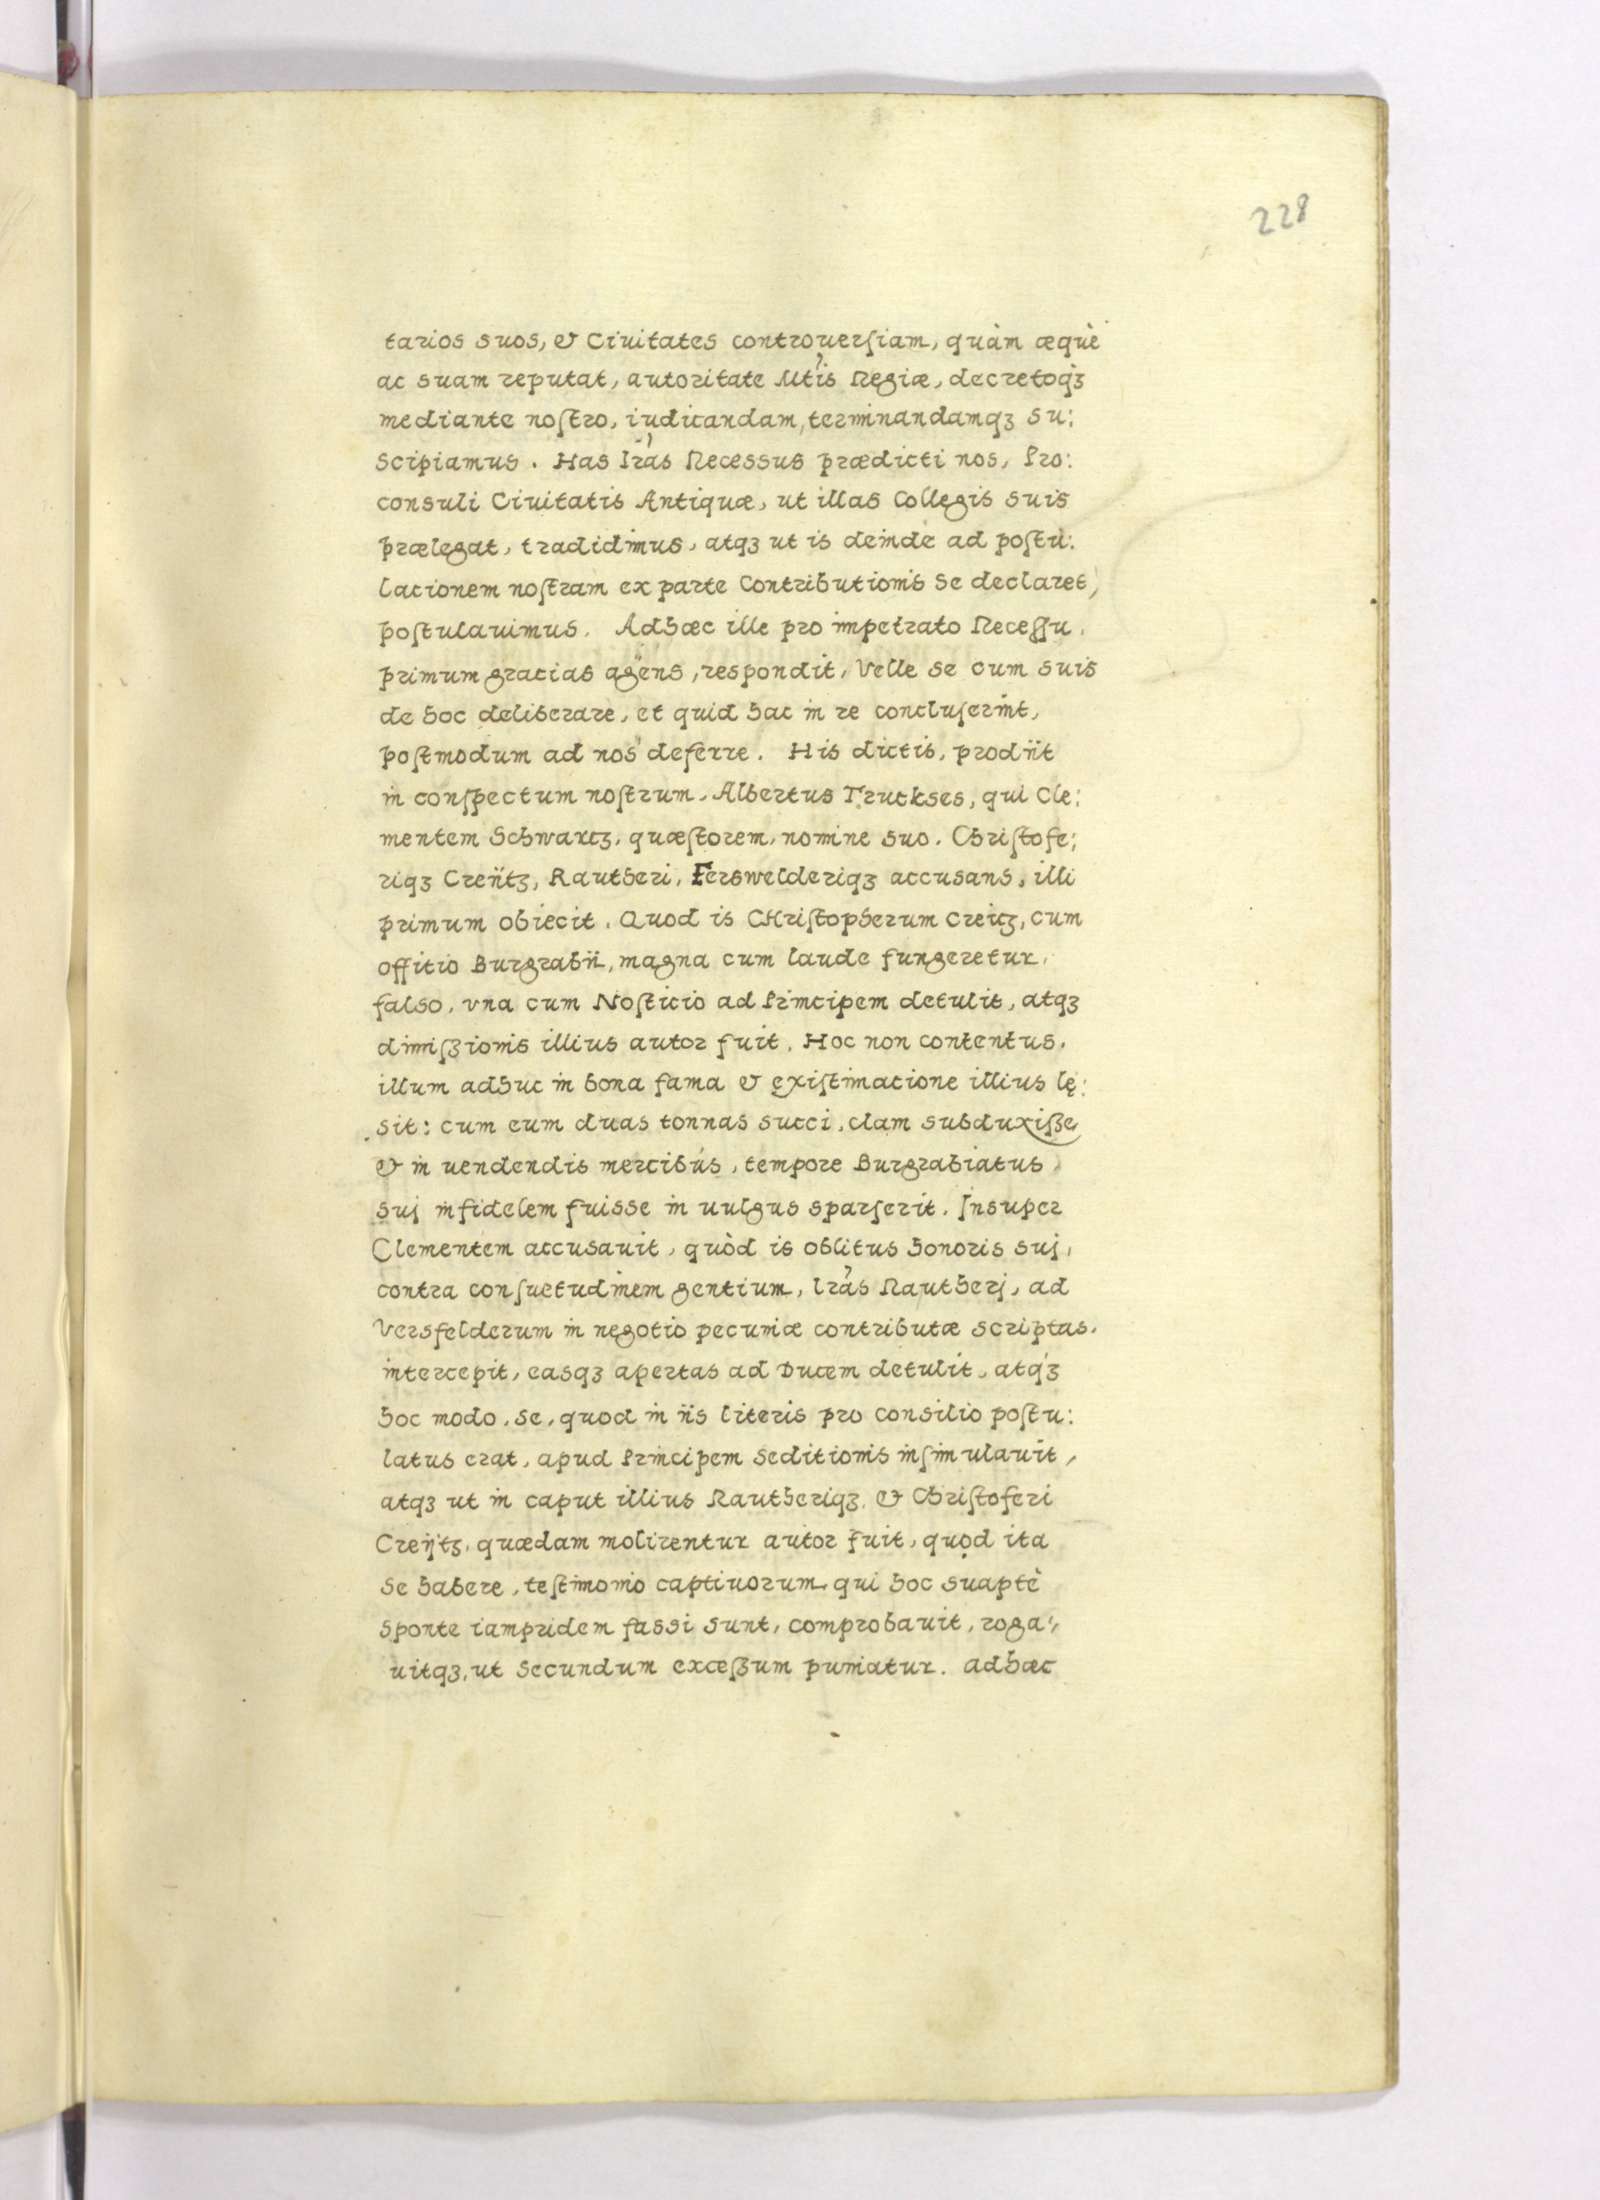 228
tarios suos, & Ciuitates controuerſiam, quàm æquè
ac suam reputat, autoritate Mtis Regiæ, decretoqꝫ
mediante noſtro, iudicandam, terminandamqꝫ su:
scipiamus. Has lr̃as Recessus prædicti nos, Pro:
consuli Ciuitatis Antiquæ, ut illas Collegis suis
prælegat, tradidimus, atqꝫ ut is deinde ad poſtu:
lacionem noſtram ex parte Contributionis se declaret,
poſtulauimus. Adhæc ille pro impetrato Receſſu,
primum gracias agens, respondit, Velle se cum suis
de hoc deliberare, et quid hac in re concluſerint,
poſtmodum ad nos deferre. His dictis, prodijt
in conſpectum noſtrum, Albertus Truckses, qui Cle:
mentem Schwartz, quæſtorem, nomine suo, Chriſtofe:
riqꝫ Creÿtz, Rautheri, Ferswelderiqꝫ accusans, illi
primum obiecit. Quod is CHriſtopherum Creitz, cum
offitio Burgrabij, magna cum laude fungeretur,
falso, vna cum Noſticio ad Principem detulit, atqꝫ
dimiſʒionis illius autor fuit. Hoc non contentus,
illum adhuc in bona fama & exiſtimacione illius lę:
sit: cum eum duas tonnas succi, clam subduxiſʒe
& in uendendis mercibus, tempore Burgrabiatus
suj infidelem fuisse in uulgus sparſerit. Insuper
Clementem accusauit, quòd is oblitus honoris suj,
contra conſuetudinem gentium, lr̃as Rautherj, ad
Versfelderum in negotio pecuniæ contributæ scriptas,
intercepit, easqꝫ apertas ad Ducem detulit, atqꝫ
hoc modo, se, quod in ijs literis pro consilio poſtu:
latus erat, apud Principem seditionis inſimulauit,
atqꝫ ut in caput illius Rautheriqꝫ, & Chriſtoferi
Creÿtz, quædam molirentur autor fuit, quod ita
se habere, teſtimonio captiuorum, qui hoc suaptè
sponte iampridem fassi sunt, comprobauit, roga:
uitqꝫ, ut secundum exceſʒum puniatur. Adhæc